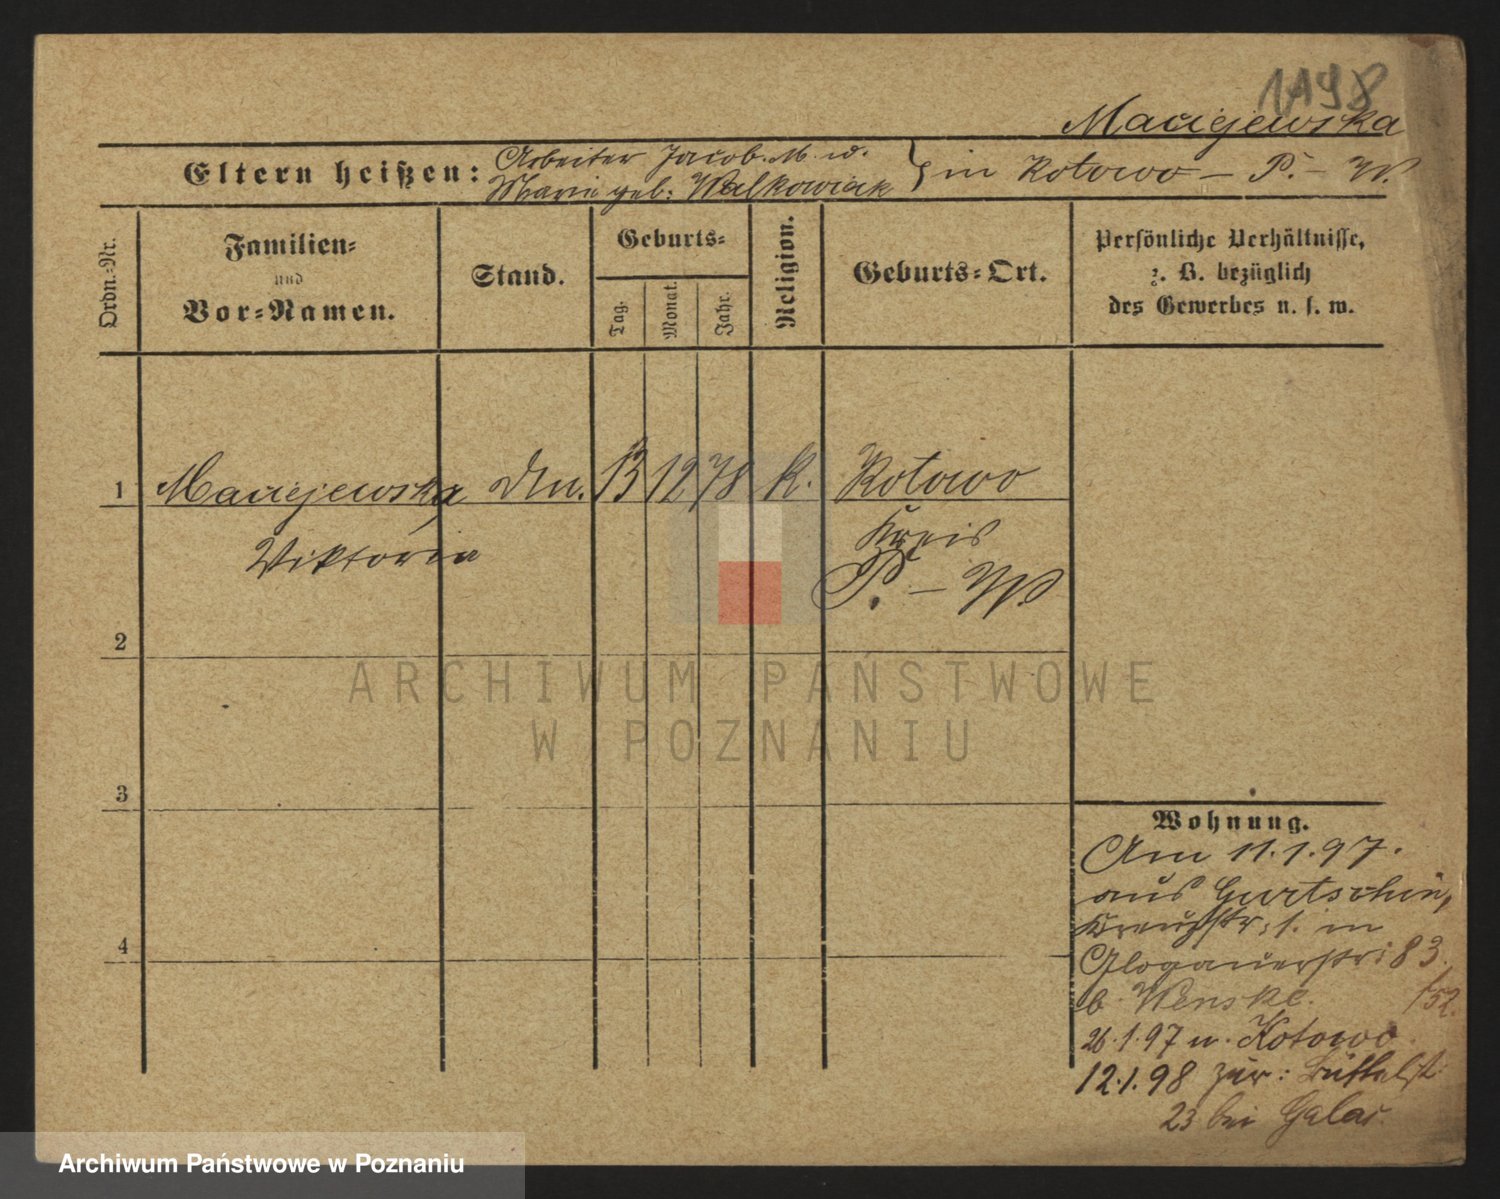 1198
Maciejewska
Eltern heißen: Arbeiter Jacob M. u.
Marie geb: Walkowiak } in Kotowo – P. – W.
Ordn.-Nr.
Familien-
und
Vor-Namen.
Stand.
Geburts-
Tag.
Monat.
Jahr.
Religion.
Geburts-Ort.
Persönliche Verhältnisse,
z. B. bezüglich
des Gewerbes u. s. w.
1 Maciejewska 13 12 78 K. Kotowo
Viktoria
Kreis
P. – W.
2
3
4
Wohnung.
Am 11.1.97.
aus Gurtschin,
Kreuzstr. 1. in
Glogauerstr: 83.
b. Wenske. /52.
26.1.97 n. Kotowo.
12.1.98 zur:
23 bei
ARCHIWUM PAŃSTWOWE
W POZNANIU
Archiwum Państwowe w Poznaniu